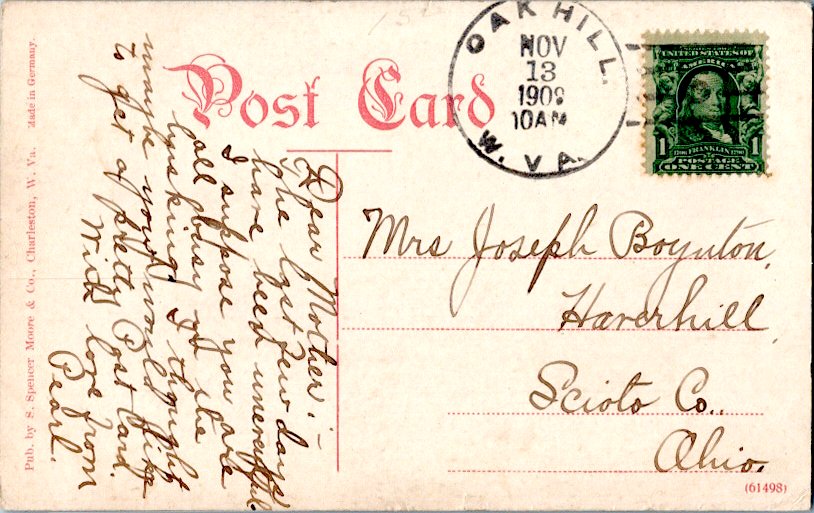 Post Card
OAK HILL.
NOV
13
1909
10AM
W. VA.
SERIES 1902
UNITED STATES OF
AMERICA
1 1
1706 FRANKLIN 1790
POSTAGE
ONE CENT
Dear Mother:-
The last few days
have been uneventful.
I suppose you are
all busy at the
husking. I thought
maybe you would like
to get a pretty Post Card.
With love from
Pearl.
Mrs Joseph Boynton,
Haverhill
Scioto Co.,
Ohio.
Pub. by S. Spencer Moore & Co., Charleston, W. Va. Made in Germany.
(61498)